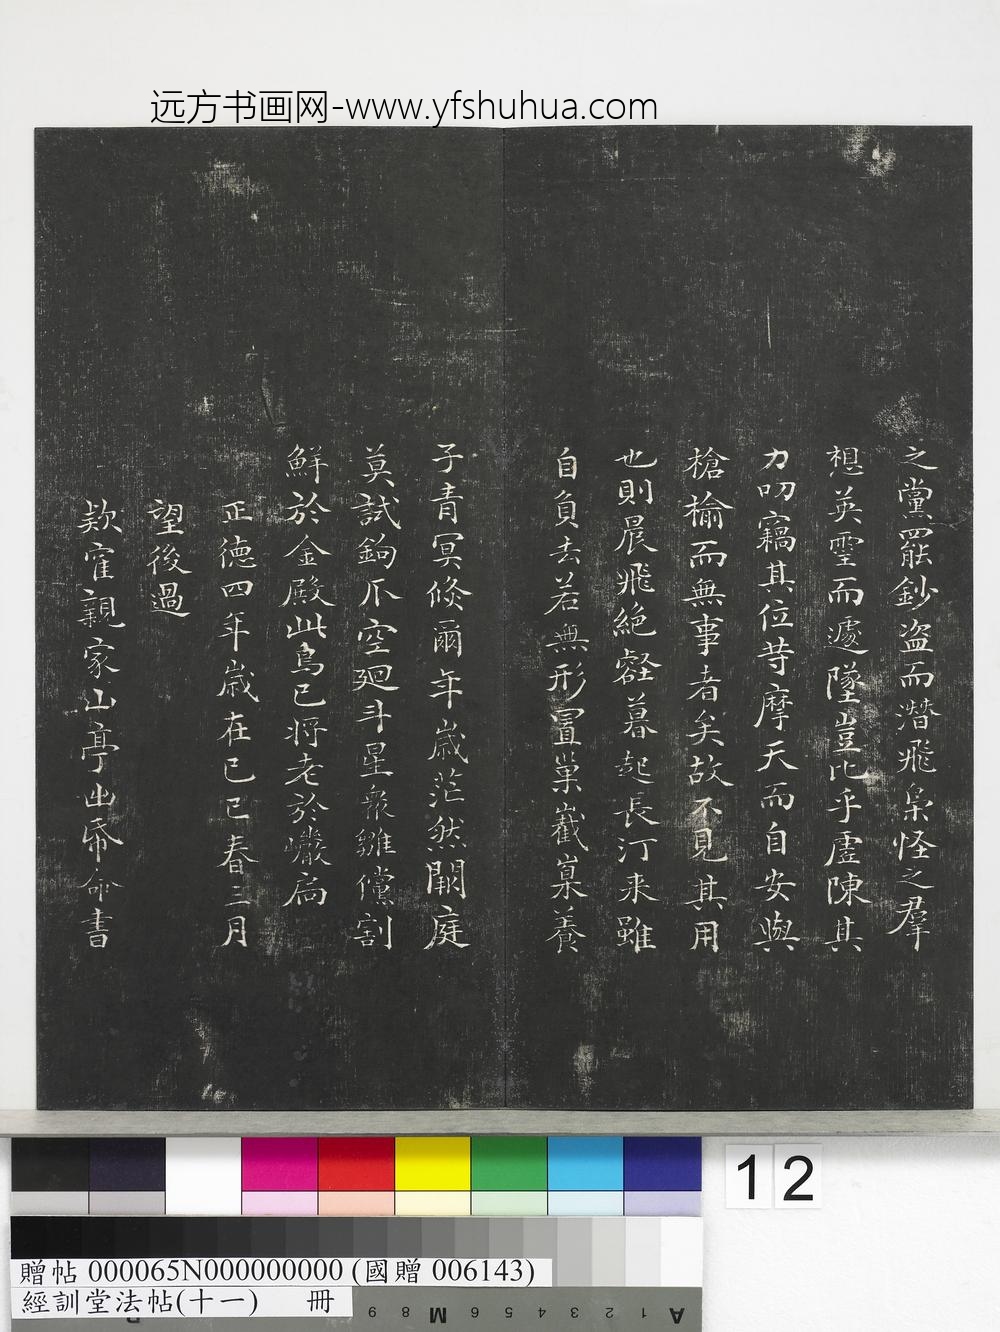 远方书画网-www.yfshuhua.com
之黨罷鈔盗而潛飛梟怪之羣
想英靈而遽墜豈比乎虛陳其
力叨竊其位等摩天而自安與
槍榆而無事者矣故不見其用
也則晨飛絶壑暮起長汀来雖
自負去若無形置巢截嶪養
子青冥倏爾年歲茫然闕庭
莫試鉤爪空迴斗星衆雛儻割
鮮於金殿此鳥已将老於巖扃
正德四年歲在己巳春三月
望後過
款寉親家山亭出𢁥命書
12
贈帖 000065N000000000 (國贈 006143)
經訓堂法帖(十一) 冊
A 1 2 3 4 5 6 M 8 9